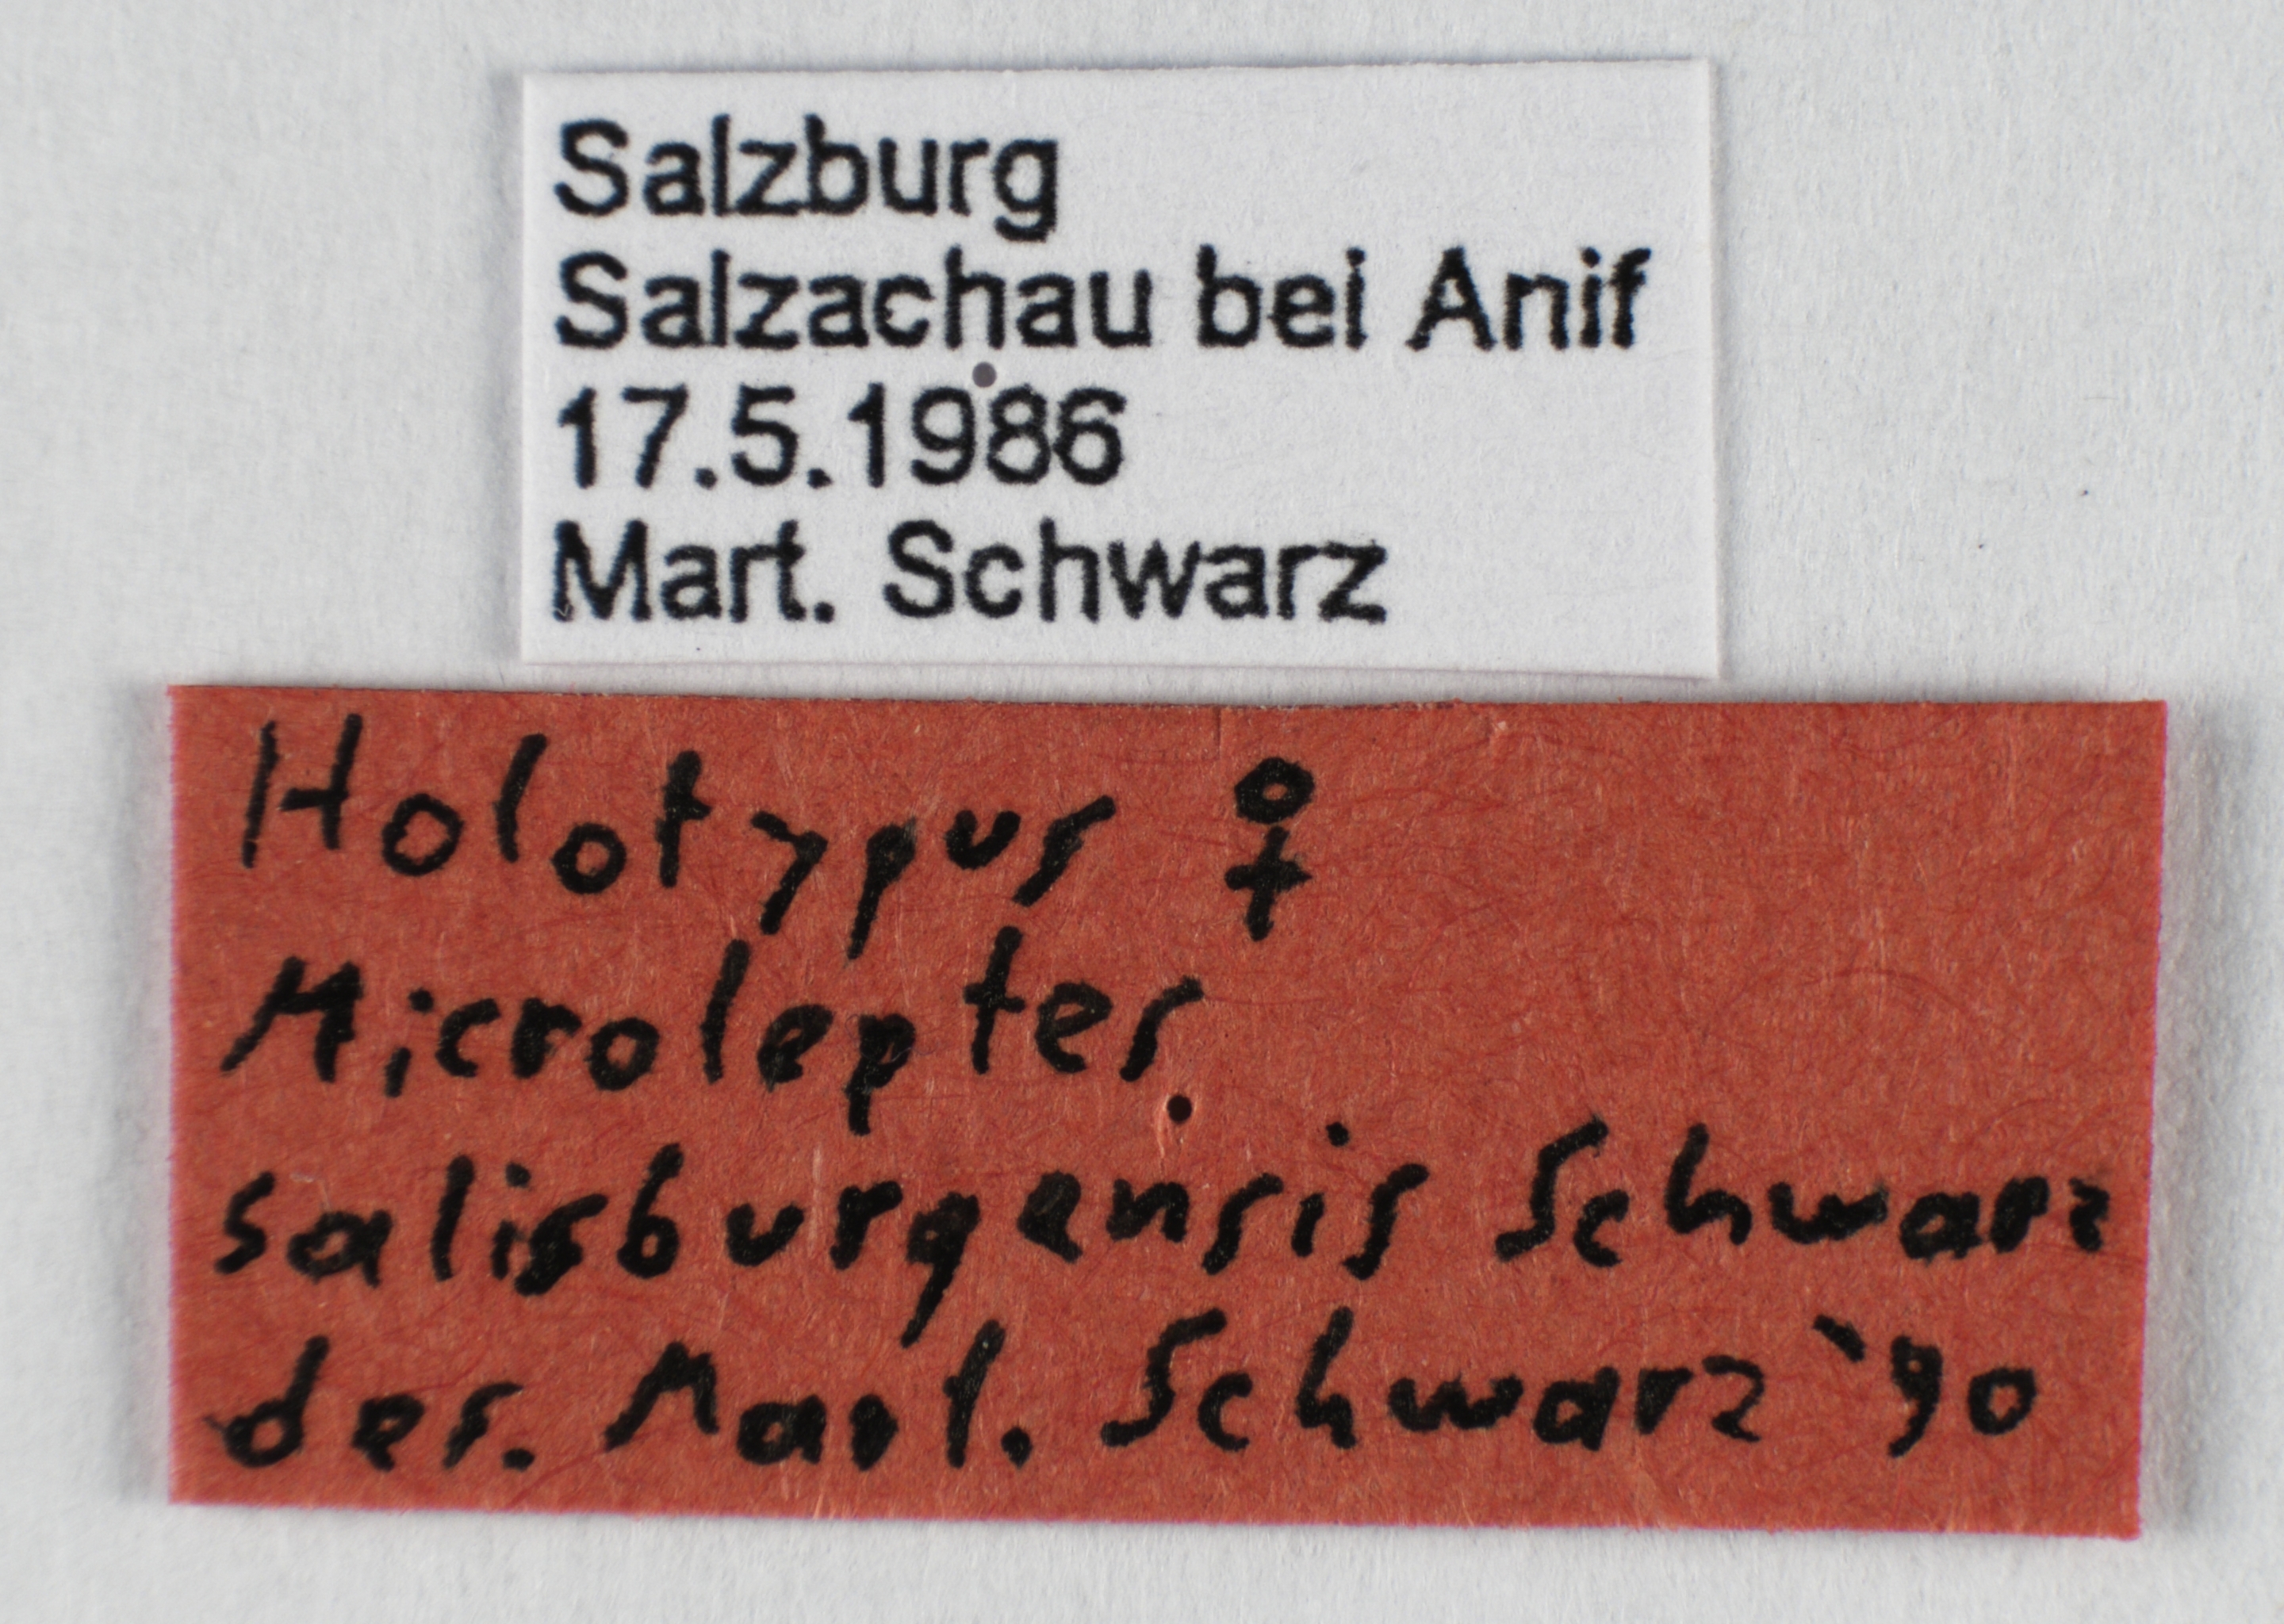 Salzburg
Salzachau bei Anif
17.5.1986
Mart. Schwarz
Holotypus ♀
Microlepter
salisburgensis Schwarz
des. Mart. Schwarz `90